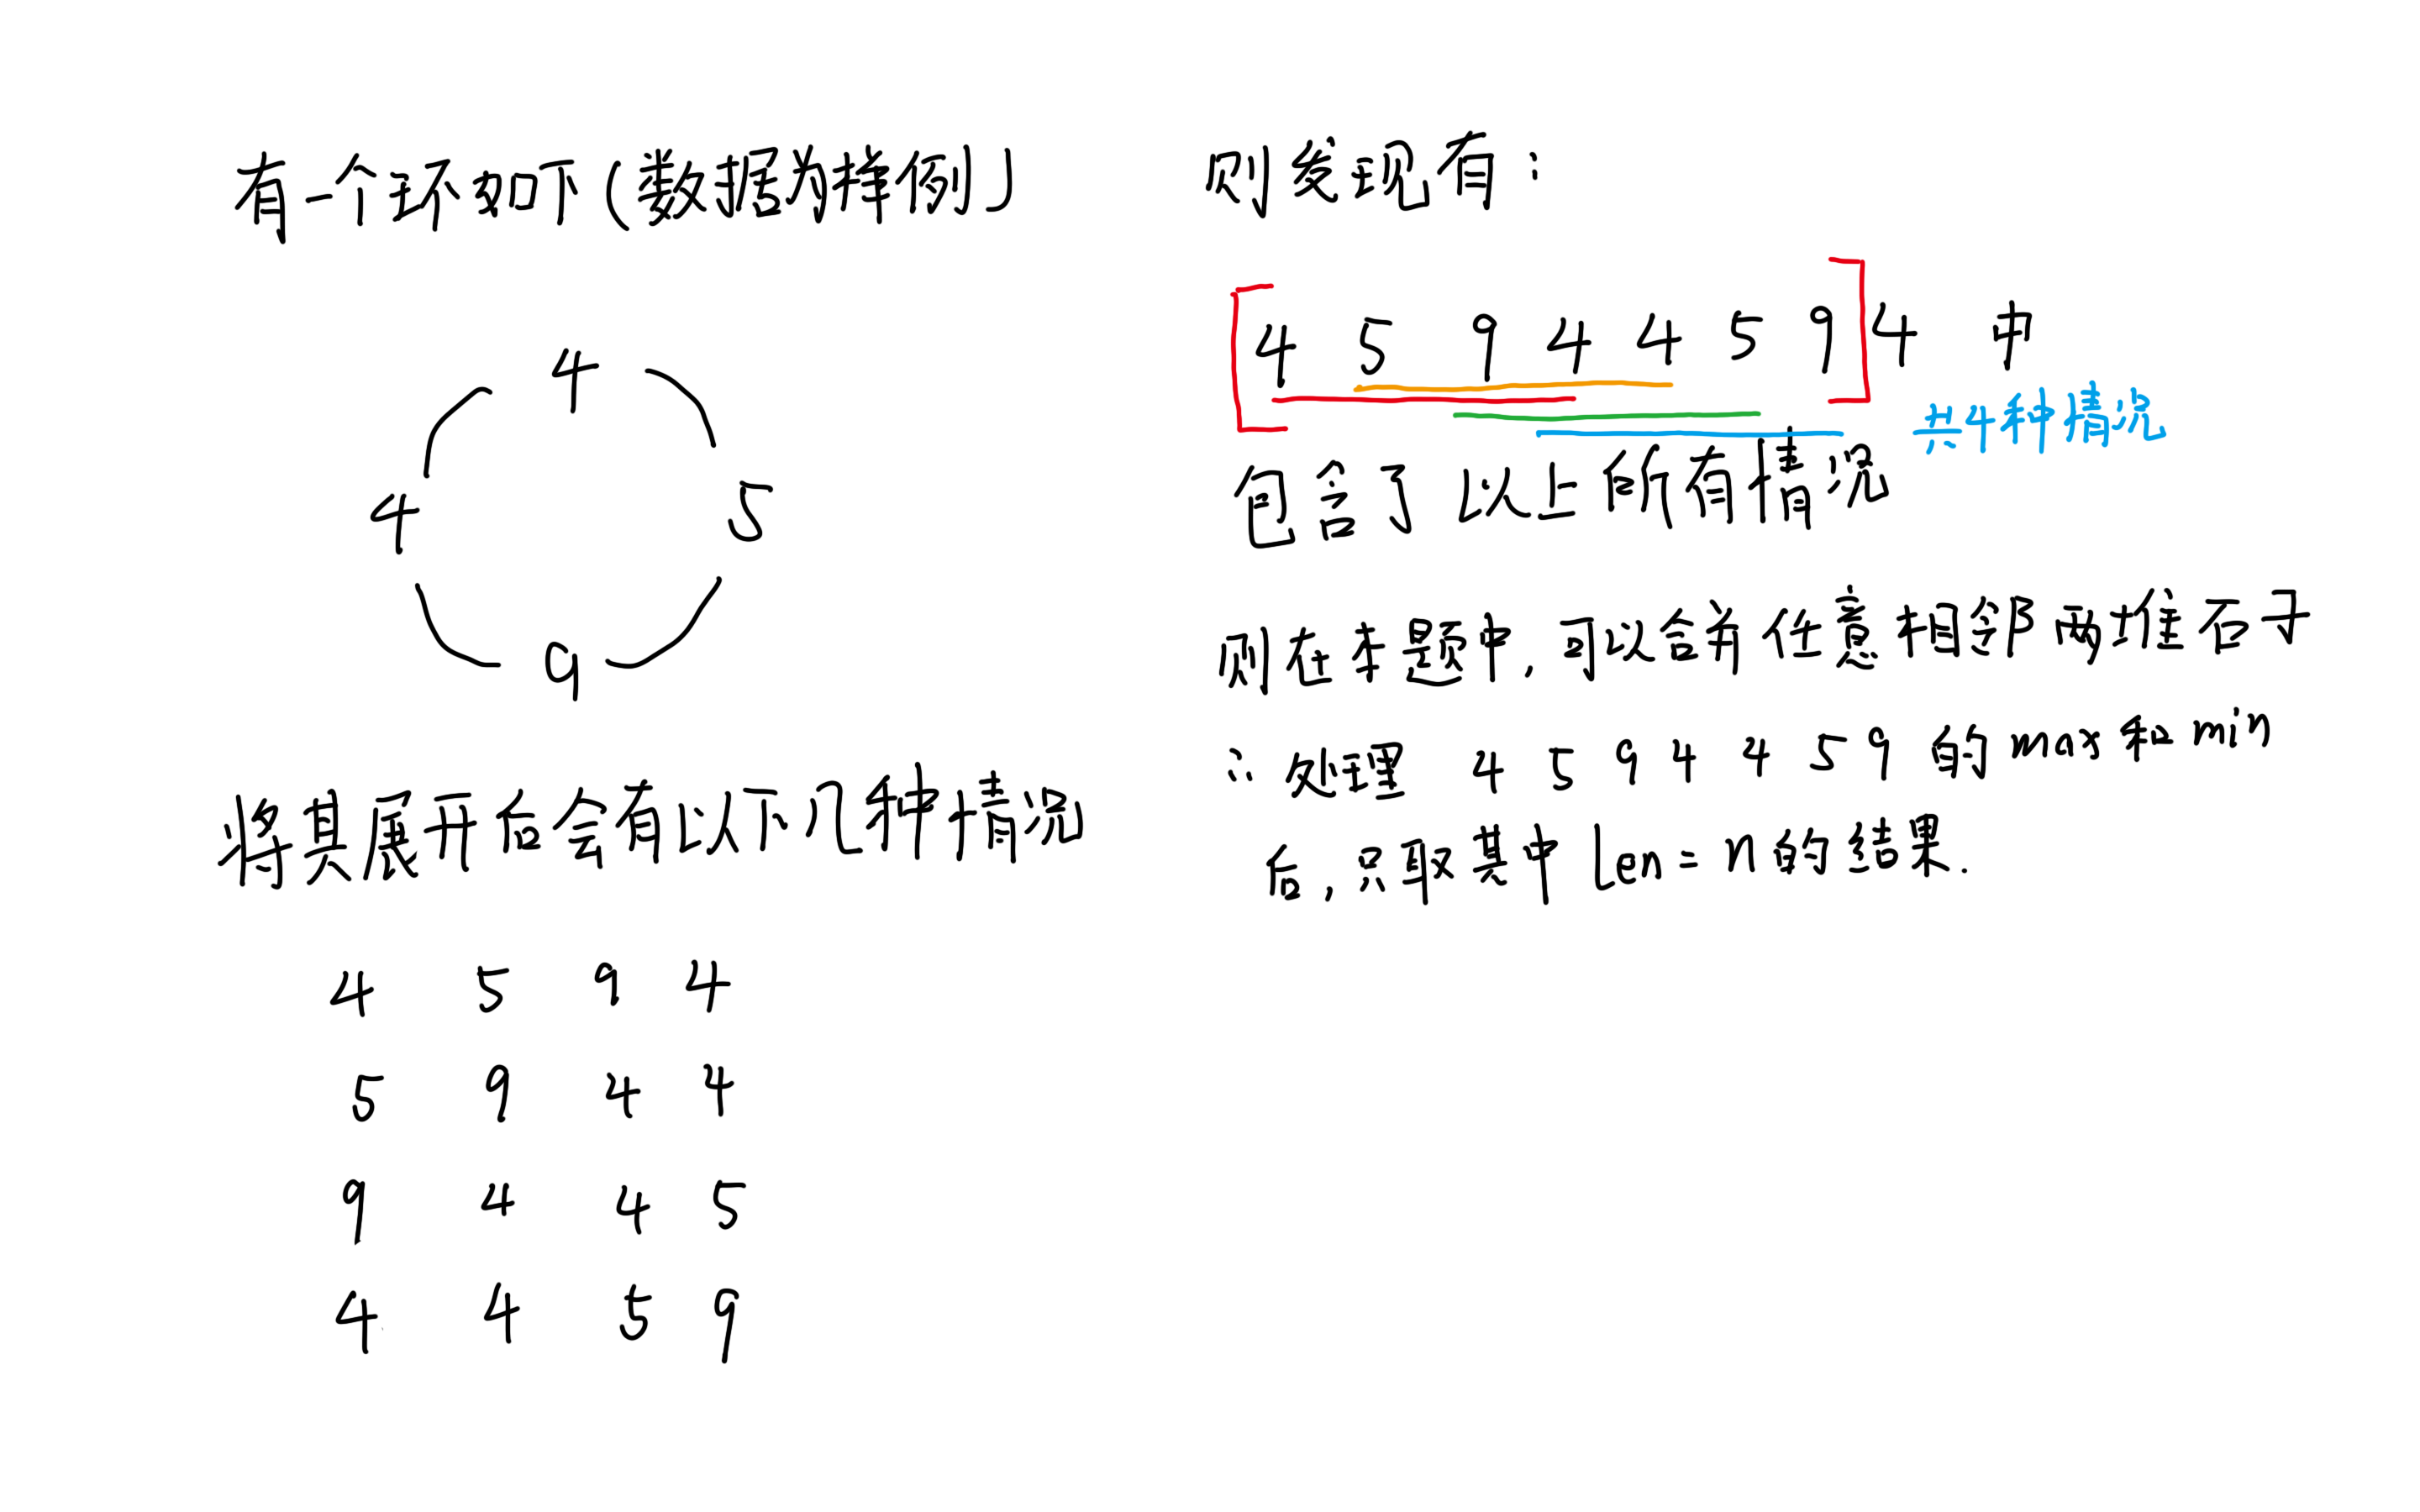 有一个环如下(数据为样例)
4
4 5
9
将其展开后会有以下几种情况
4 5 9 4
5 9 4 4
9 4 4 5
4 4 5 9
则发现有:
[4 5 9 4 4 5 9] 4 中
共4种情况
包含了以上所有情况
则在本题中,可以合并任意相邻两堆石子
∴ 处理 4 5 9 4 4 5 9 的max和min
后,只取其中len=n的结果.